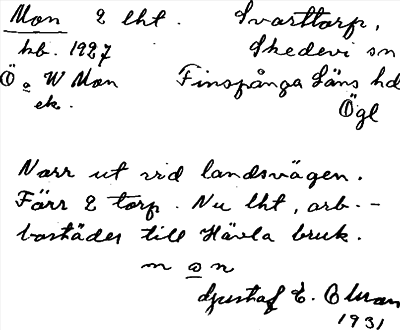 Mon 2 lht. Svarttorp,
kb. 1927 Skedevi sn
Ö o W Mon Finspånga Läns hd
ek. Ögl
Norr ut vid landsvägen.
Förr 2 torp. Nu lht, arb.-
bostäder till Hävla bruk.
m o n
Gustaf E. Ekman
1931